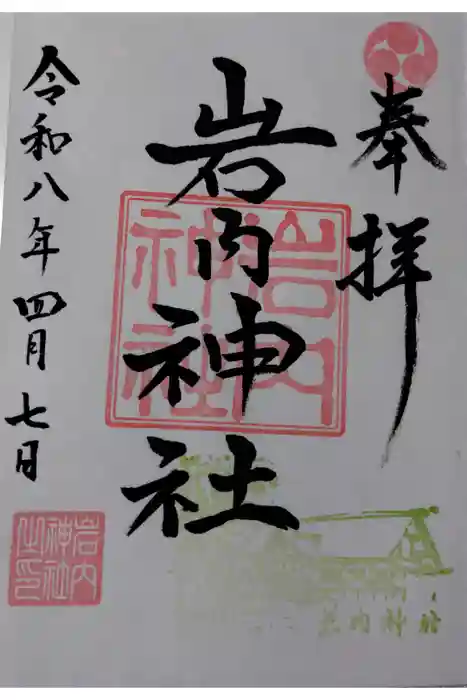 奉拝
岩内神社
岩内神社
令和八年四月七日
岩内
神社
之印
岩内神社